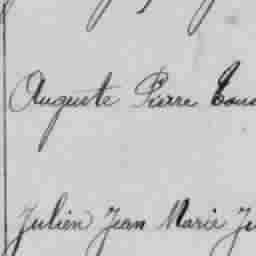 Auguste Pierre
Julien Jean Marie